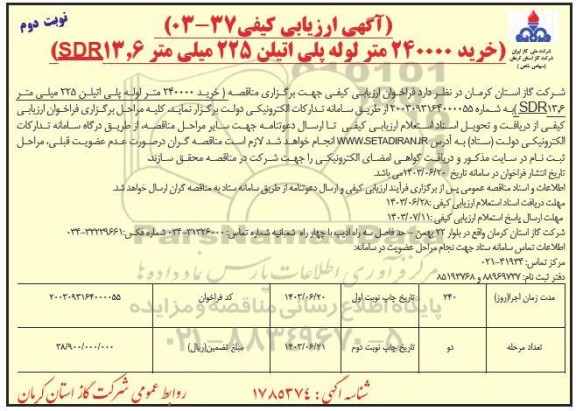 نوبت دوم
(آگهی ارزیابی کیفی ۳۷-۰۳)
(خرید ۲۴۰۰۰۰ متر لوله پلی اتیلن ۲۲۵ میلی متر SDR۱۳,۶)
شرکت ملی گاز ایران
شرکت گاز استان کرمان
(سهامی خاص)
شرکت گاز استان کرمان در نظر دارد فراخوان ارزیابی کیفی جهت برگزاری مناقصه ( خرید ۲۴۰۰۰۰ متر لوله پلی اتیلن ۲۲۵ میلی متر
SDR۱۳,۶)به شماره ۲۰۰۳۰۹۳۱۶۴۰۰۰۰۵۵ از طریق سامانه تدارکات الکترونیکی دولت برگزار نماید. کلیه مراحل برگزاری فراخوان ارزیابی
کیفی از دریافت و تحویل اسناد استعلام ارزیابی کیفی تا ارسال دعوتنامه جهت سایر مراحل مناقصه، از طریق درگاه سامانه تدارکات
الکترونیکی دولت (ستاد) به آدرس WWW.SETADIRAN.IR انجام خواهد شد. لازم است مناقصه گران درصورت عدم عضویت قبلی، مراحل
ثبت نام در سایت مذکور و دریافت گواهی امضای الکترونیکی را جهت شرکت در مناقصه محقق سازند.
تاریخ انتشار فراخوان در سامانه تاریخ ۱۴۰۳/۰۶/۲۰می باشد.
اطلاعات و اسناد مناقصه عمومی پس از برگزاری فرآیند ارزیابی کیفی و ارسال دعوتنامه از طریق سامانه ستاد به مناقصه گران ارسال خواهد شد.
مهلت دریافت اسناد استعلام ارزیابی کیفی :۱۴۰۳/۰۶/۲۸
مهلت ارسال پاسخ استعلام ارزیابی کیفی :۱۴۰۳/۰۷/۱۱
شرکت گاز استان کرمان واقع در بلوار ۲۲ بهمن - حد فاصل سه راه ادیب با چهار راه شمائیه شماره تماس: ۳۱۳۲۶۰۰۰-۰۳۴ شماره فکس:۳۳۲۳۹۶۶۱-۰۳۴
اطلاعات تماس سامانه ستاد جهت انجام مراحل عضویت در سامانه:
مرکز تماس: ۴۱۹۳۴-۰۲۱
دفتر ثبت نام: ۸۸۹۶۹۷۳۷ و ۸۵۱۹۳۷۶۸
مدت زمان اجرا(روز) ۲۴۰ تاریخ چاپ نوبت اول ۱۴۰۳/۰۶/۲۰ کد فراخوان ۲۰۰۳۰۹۳۱۶۴۰۰۰۰۵۵
تعداد مرحله دو تاریخ چاپ نوبت دوم ۱۴۰۳/۰۶/۲۱ مبلغ تضمین(ریال) ۳۸/۹۰۰/۰۰۰/۰۰۰
شناسه آگهی : ۱۷۸۵۳۷۴ روابط عمومی شرکت گاز استان کرمان
پایگاه اطلاع رسانی مناقصه و مزایده
۰۲۱-۸۸۳۴۹۶۷۰-۵